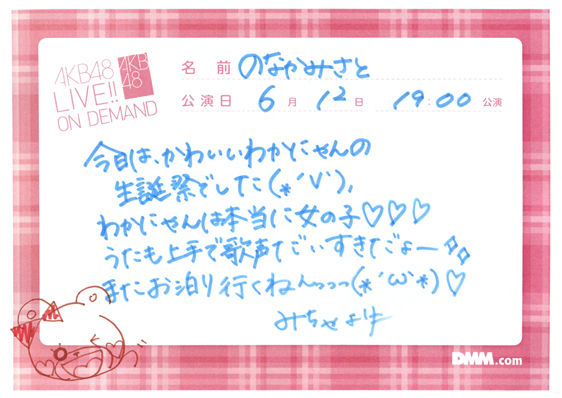 AKB48
LIVE!!
ON DEMAND
AKB
48
名 前 のなかみさと
公演日 6月 12日 19:00 公演
今日は、かわいいわかにゃんの
生誕祭でした(*´V`),
わかにゃんは本当に女の子♡♡♡
うたも上手で歌声だいすきだよー
またお泊り行くねんっっっ(*´ω`*)♡
みちゃより
DMM.com